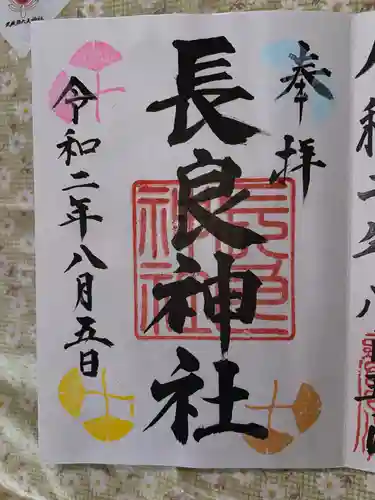 奉拝
長良神社
長良神社
令和二年八月五日